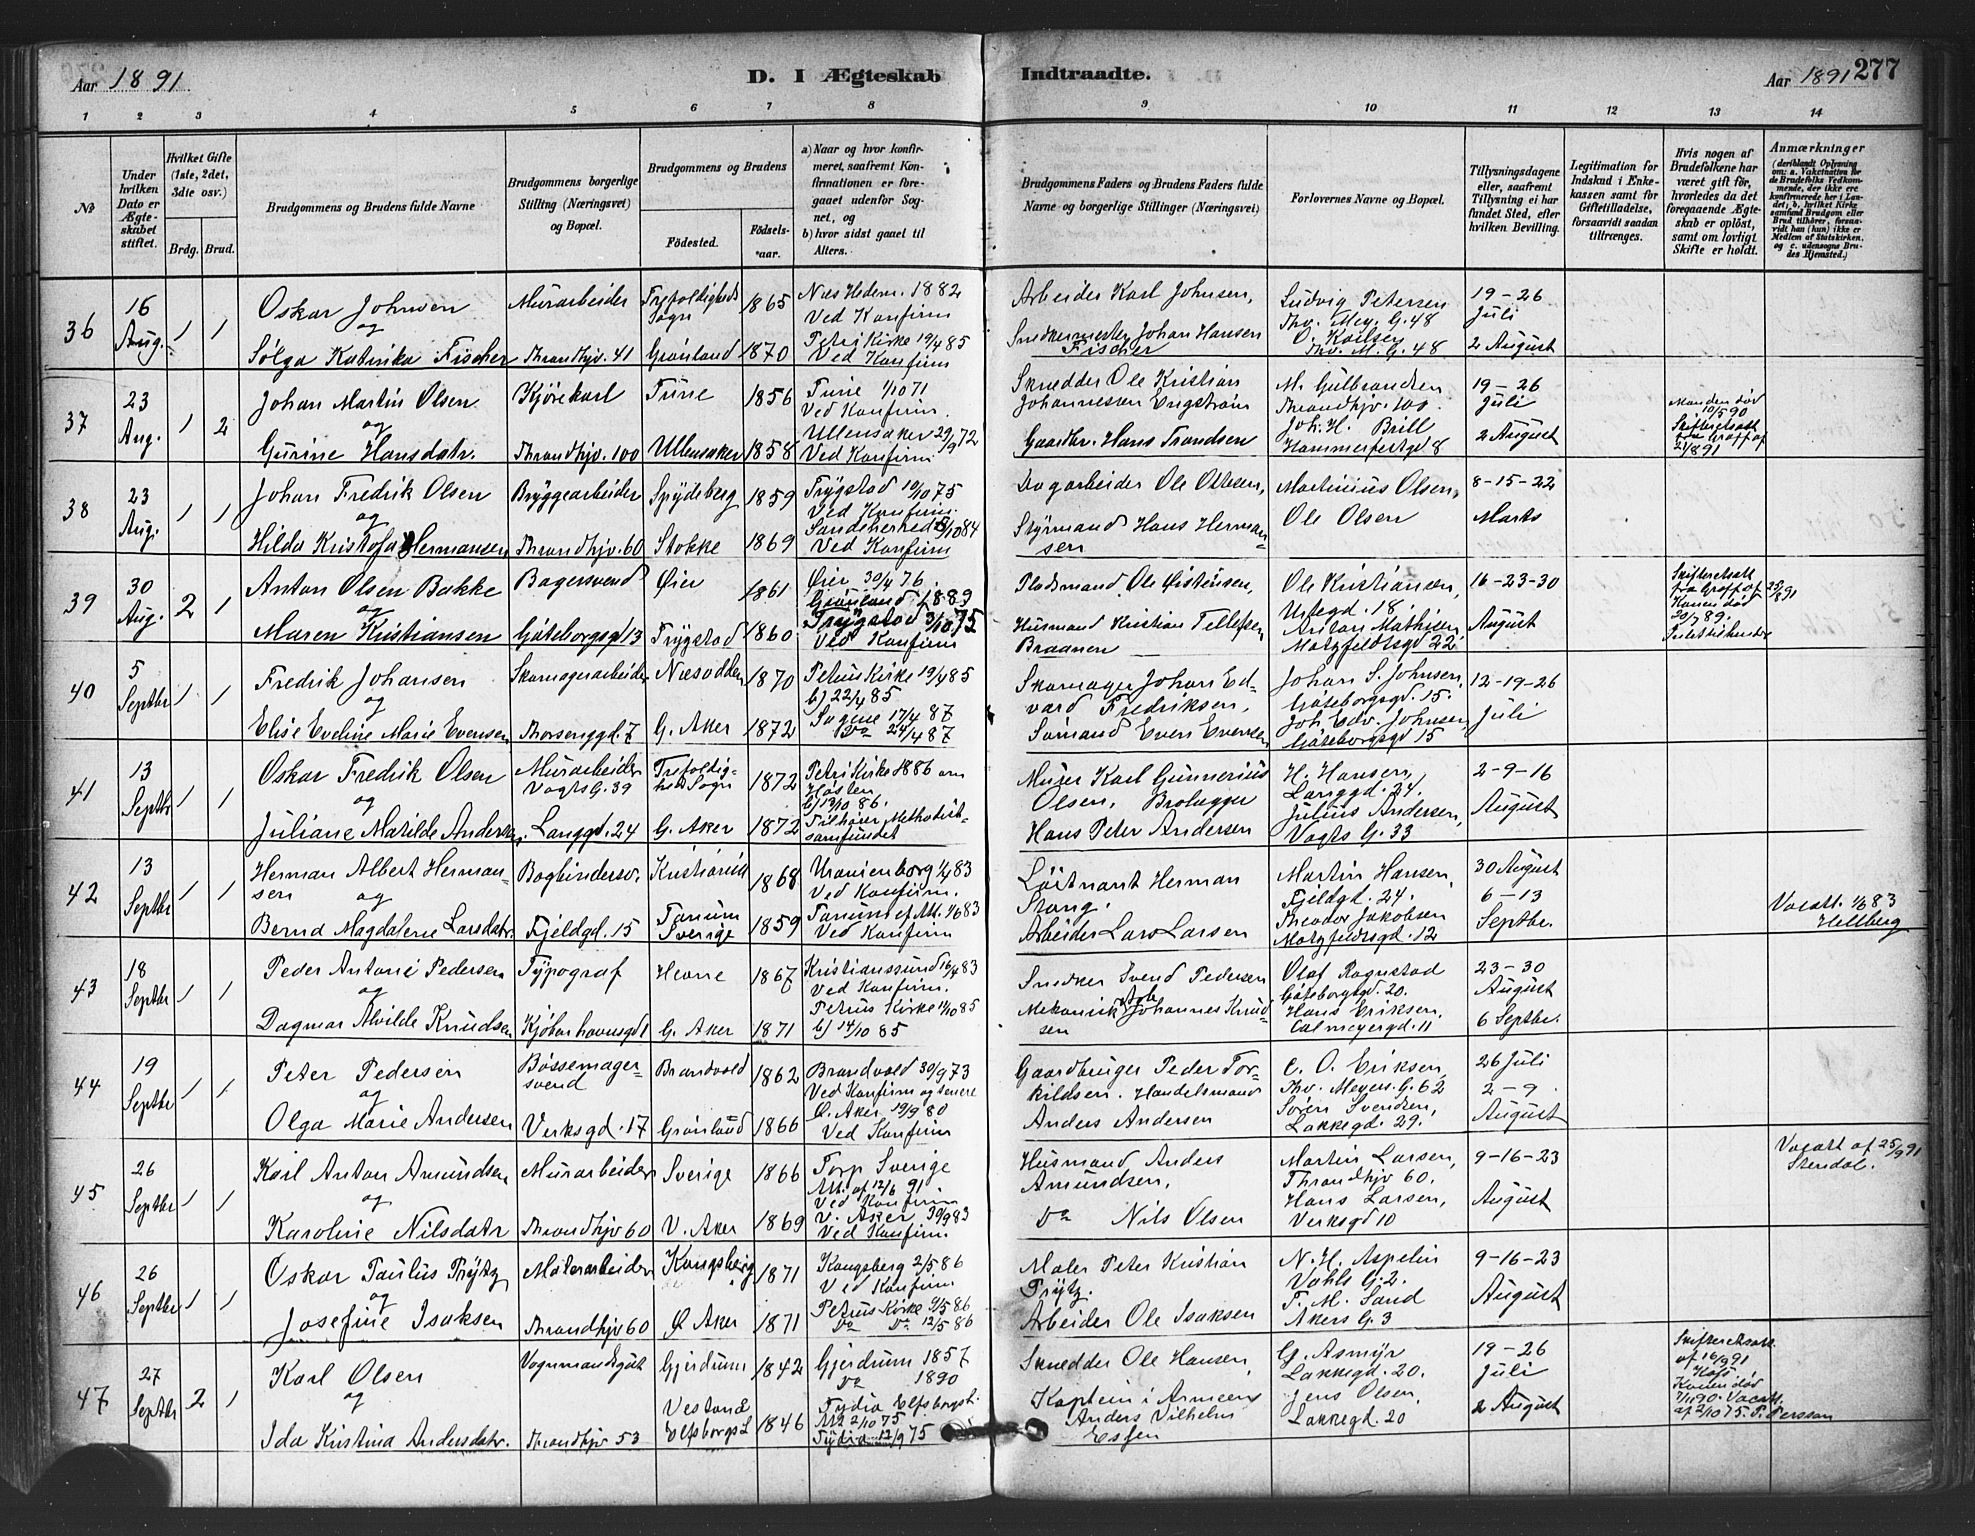 Aar 1891
D. I Ægteskab
Indtraadte.
Aar 1891 277
1 2 3 4 5 6 7 8 9 10 11 12 13 14
№
Under hvilken Dato er Ægteskabet stiftet.
Hvilket Gifte (1ste, 2det, 3die osv.)
Brdg. Brud.
Brudgommens og Brudens fulde Navne
Brudgommens borgerlige Stilling (Næringsvei) og Bopæl.
Brudgommens og Brudens
Fødested.
Fødselsaar.
a) Naar og hvor konfirmeret, saafremt Konfirmationen er foregaaet udenfor Sognet, og
b) hvor sidst gaaet til Alters.
Brudgommens Faders og Brudens Faders fulde Navne og borgerlige Stillinger (Næringsvei)
Forlovernes Navne og Bopæl.
Tillysningsdagene eller, saafremt Tillysning ei har fundet Sted, efter hvilken Bevilling.
Legitimation for Indskud i Enkekassen samt for Giftetilladelse, forsaavidt saadan tiltrænges.
Hvis nogen af Brudefolkene har været gift før, hvorledes da det foregaaende Ægteskab er opløst, samt om lovligt Skifte er holdt.
Anmærkninger
(deriblandt Oplysning om: a. Vaccination for de Brudefolks Vedkommende, der ikke ere konfirmerede her i Landet; b. hvilket Kirkesamfund Brudgom eller Brud tilhører, forsaavidt han (hun) ikke er Medlem af Statskirken, og c. udensogns Brudes Hjemsted.)
36 16 Aug. 1 1
Oskar Johnsen Murarbeider Trefoldigheds Sogn 1865 Næs Hedem. 1882
og Ved Konfirm
Sølga Katinka Fischer Thrandhjv. 41 Grønland 1870 Petri Kirke 19/4 85
Ved Konfirm
Arbeider Karl Johnsen, Ludvig Petersen 19-26
Thv. Mey. G. 48 Juli
Snedkermester Johan Hansen Fischer
Thv. M. G. 48 2 August
37 23 Aug. 1 2
Johan Martin Olsen Kjørekarl Tune 1856 Tune 1/10 71
og Ved Konfirm.
Gurine Hansdatr. Thrandhjv. 100 Ullensaker 1858 Ullensaker 29/9 72
Ved Konfirm
Skrædder Ole Kristian M. Gulbrandsen 19-26
Johannessen Engstrøm Thrandhjv. 100. Juli
Joh. H. Brill
Gaardbr. Hans Trondsen Hammerfestgd 8 2 August
Manden død 10/5 90
Skifteretsatt fra Graff af 21/8 91
38 23 Aug. 1 1
Johan Fredrik Olsen Bryggearbeider Spydeberg 1859 Trygstad 10/10 75
og Ved Konfirm.
Hilda Kristofa Hermansen Thrandhjv. 60 Stokke 1869 Sandeherred 5/10 84
Ved Konfirm
Dagarbeider Ole Olsen, Martinius Olsen, 8-15-22
Styrmand Hans Hermansen Ole Olsen Marts
39 30 Aug. 2 1
Anton Olsen Bakke Bagersvend Øier 1861 Øier 30/4 76.
og Grønland 1889
Maren Kristiansen Gøteborgsgd 13 Trygstad 1860 Trygstad 3/10 75
Ved Konfirm
Pladsmand Ole Øistensen, Ole Kristiansen, 16-23-30
Urtegd. 18
Husmand Kristian Tellefsen Anton Mathisen, August
Braanen Motzfeldtsgd 22
Skifteretsatt fra Graff af 25/8 91
Konen død 20/7 89.
40 5 Septbr 1 1
Fredrik Johansen Skomagerarbeider Næsodden 1870 Petrus Kirke 19/4 85
og b) 22/4 85
Elise Eveline Marie Evensen Thorsenggd. 7 G. Aker 1872 Sagene 17/4 87
Do 24/4 87
Skomager Johan Edvard Fredriksen, Johan S. Johnsen, 12-19-26
Gøteborgsgd. 15.
Sømand Even Evensen Joh. Edv. Johnsen, Juli
Gøteborgsgd 15
41 13 Septbr 1 1
Oskar Fredrik Olsen Murarbeider Trefoldigheds Sogn 1872 Petri Kirke 1886 om Høsten
og Vogts G. 39 b) 13/10 86.
Juliane Matilde Andersen, Langgd. 24 G. Aker 1872 Tilhører Methodistsamfundet
Murer Karl Gunnerius H. Hansen, 2-9-16
Olsen. Brolægger Langgd. 24. August
Hans Peter Andersen Julius Andersen, Vogts G. 33
42 13 Septbr 1 1
Herman Albert Hermansen Bogbindersv. Kristiania 1868 Uranienborg 1/4 83
og Ved Konfirm.
Bernd Magdalene Larsdatr. Fjeldgd. 15 Tanum Sverige 1859 Tanum ef. Att. 1/6 83
Ved Konfirm
Løitnant Herman Stang. Martin Hansen, 30 August
Fjeldgd. 24. 6-13
Arbeider Lars Larsen Theodor Jakobsen Septbr.
Motzfeldtsgd. 12
Vacatt. 1/6 83 Hellberg
43 18 Septbr 1 1
Peder Antoni Pedersen Typograf Hevne 1867 Kristianssund 16/4 83
og Ved Konfirm.
Dagmar Alvilde Knudsen Kjøbenhavnsgd 1 G. Aker 1871 Petrus Kirke 11/10 85
b) 14/10 85
Snedker Svend Pedersen Olaf Rognstad 23-30
Gøteborgsgd. 20. August
Mekanik Johannes Knudsen Hans Eriksen, 6 Septbr.
Calmeyergd. 11
44 19 Septbr 1 1
Peter Pedersen Bøssemagersvend Brandvold 1862 Brandvold 30/9 73
og Ved Konfirm og senere
Olga Marie Andersen Verksgd. 17 Grønland 1866 Ø. Aker 19/9 80
Ved Konfirm
Gaardbruger Peder Torkildsen. Handelsmand C. O. Eriksen, 26 Juli
Thv. Meyers. G. 62 2-9.
Anders Andersen Søren Svendsen, August
Lakkegd. 29.
45 26 Septbr 1 1
Karl Anton Amundsen Murarbeider Sverige 1866 Torp Sverige
og Att. af 12/6 91
Ved Konfirm
Karoline Nilsdatr Thrandhjv 60 V. Aker 1869 V. Aker 30/9 83
Ved Konfirm.
Husmand Anders Amundsen, Martin Larsen, 9-16-23
Thrandhjv 60. August
Do Nils Olsen Hans Larsen, Verksgd 10
Vacatt af 25/9 91 Stendal.
46 26 Septbr 1 1
Oskar Paulus Frytz Malerarbeider Kongsberg 1871 Kongsberg 2/5 86
og Ved Konfirm
Josefine Isaksen Thrandhjv 60 Ø Aker 1871 Petrus Kirke 9/5 86
Do Do 12/5 86
Maler Peter Kristian Frytz. N. H. Aspelin 9-16-23
Vahls G. 2. August
Arbeider Ole Isaksen T. M. Sand
Akers G. 3
47 27 Septbr 2 1
Karl Olsen Vognmandsgut Gjerdrum 1842 Gjerdrum 1857
og Do 1890
Ida Kristina Andersdatr. Thrandhjv 53 Vestand Elfsborgs L 1846 Fydia Elfsborgsl.
Att 2/10 75
Fydia 12/9 75
Skrædder Ole Hansen, G. Asmyr 19-26
Lakkegd. 20. Juli
Kaptein i Armeen Jens Olsen, 2 August
Anders Vilhelm Essen Lakkegd. 20
Skifteretsatt. af 16/9 91
Konen død
1/10 90. Vacatt. af 2/10 75. P. Persson